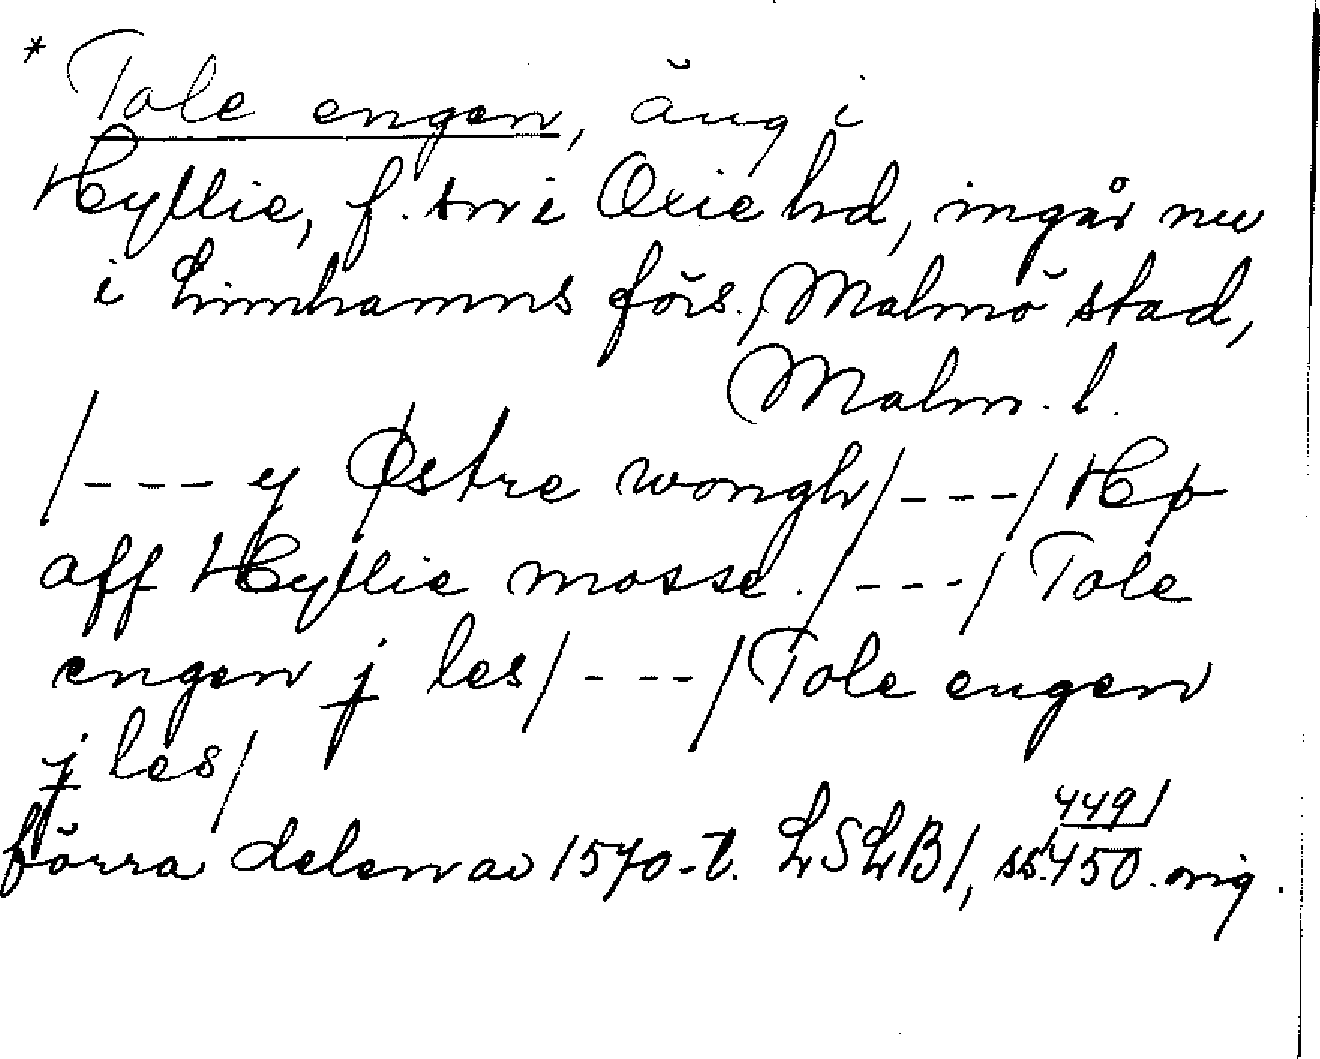 * Tole engen, äng i
Hyllie, f. sn i Oxie hd, ingår nu
i Limhamns förs., Malmö stad,
Malm. l.
/--- y Østre wongh/---/ Hp
aff Hyllie mosse./---/ Tole
engen j les/---/Tole engen
j les/
förra delen av 1570-t. LSLB1, ss. 449/
450. orig.